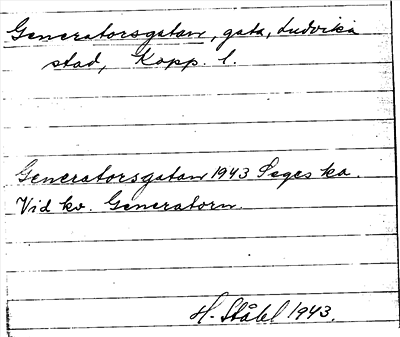 Generatorsgatan, gata, Ludvika
stad, Kopp. l.
Generatorsgatan 1943 Seges ka.
Vid kv. Generatorn.
H. Ståhl 1943.